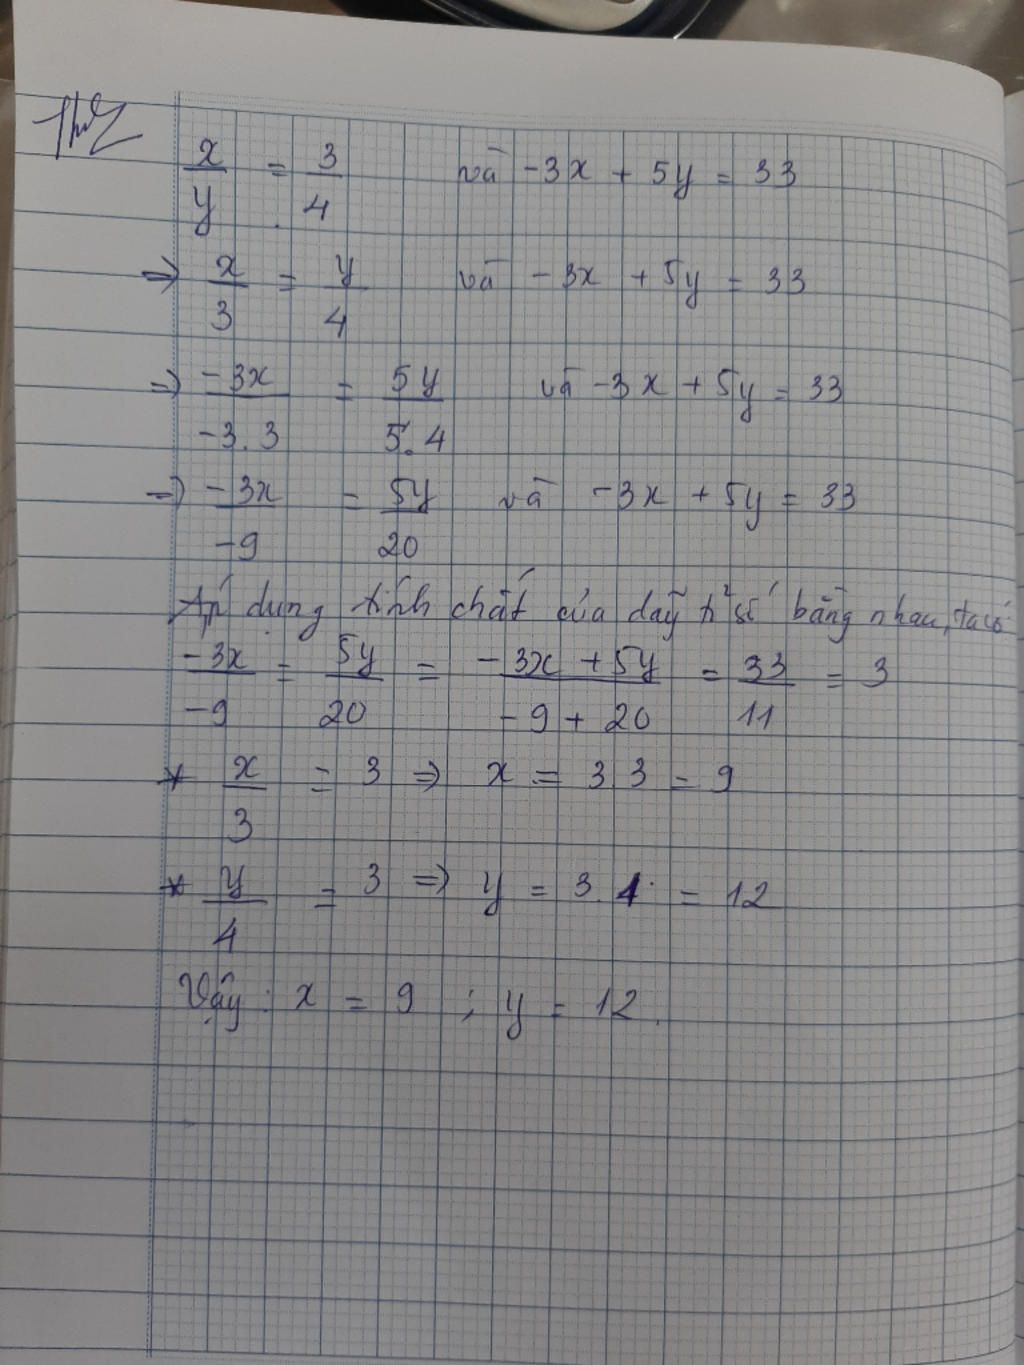 x/y = 3/4 và -3x + 5y = 33
=> x/3 = y/4 và -3x + 5y = 33
=> -3x/-3.3 = 5y/5.4 và -3x + 5y = 33
=> -3x/-9 = 5y/20 và -3x + 5y = 33
Áp dụng tính chất của dãy tỉ số bằng nhau, ta có
-3x/-9 = 5y/20 = -3x + 5y/-9 + 20 = 33/11 = 3
* x/3 = 3 => x = 3.3 = 9
* y/4 = 3 => y = 3.4 = 12
Vậy : x = 9 ; y = 12.